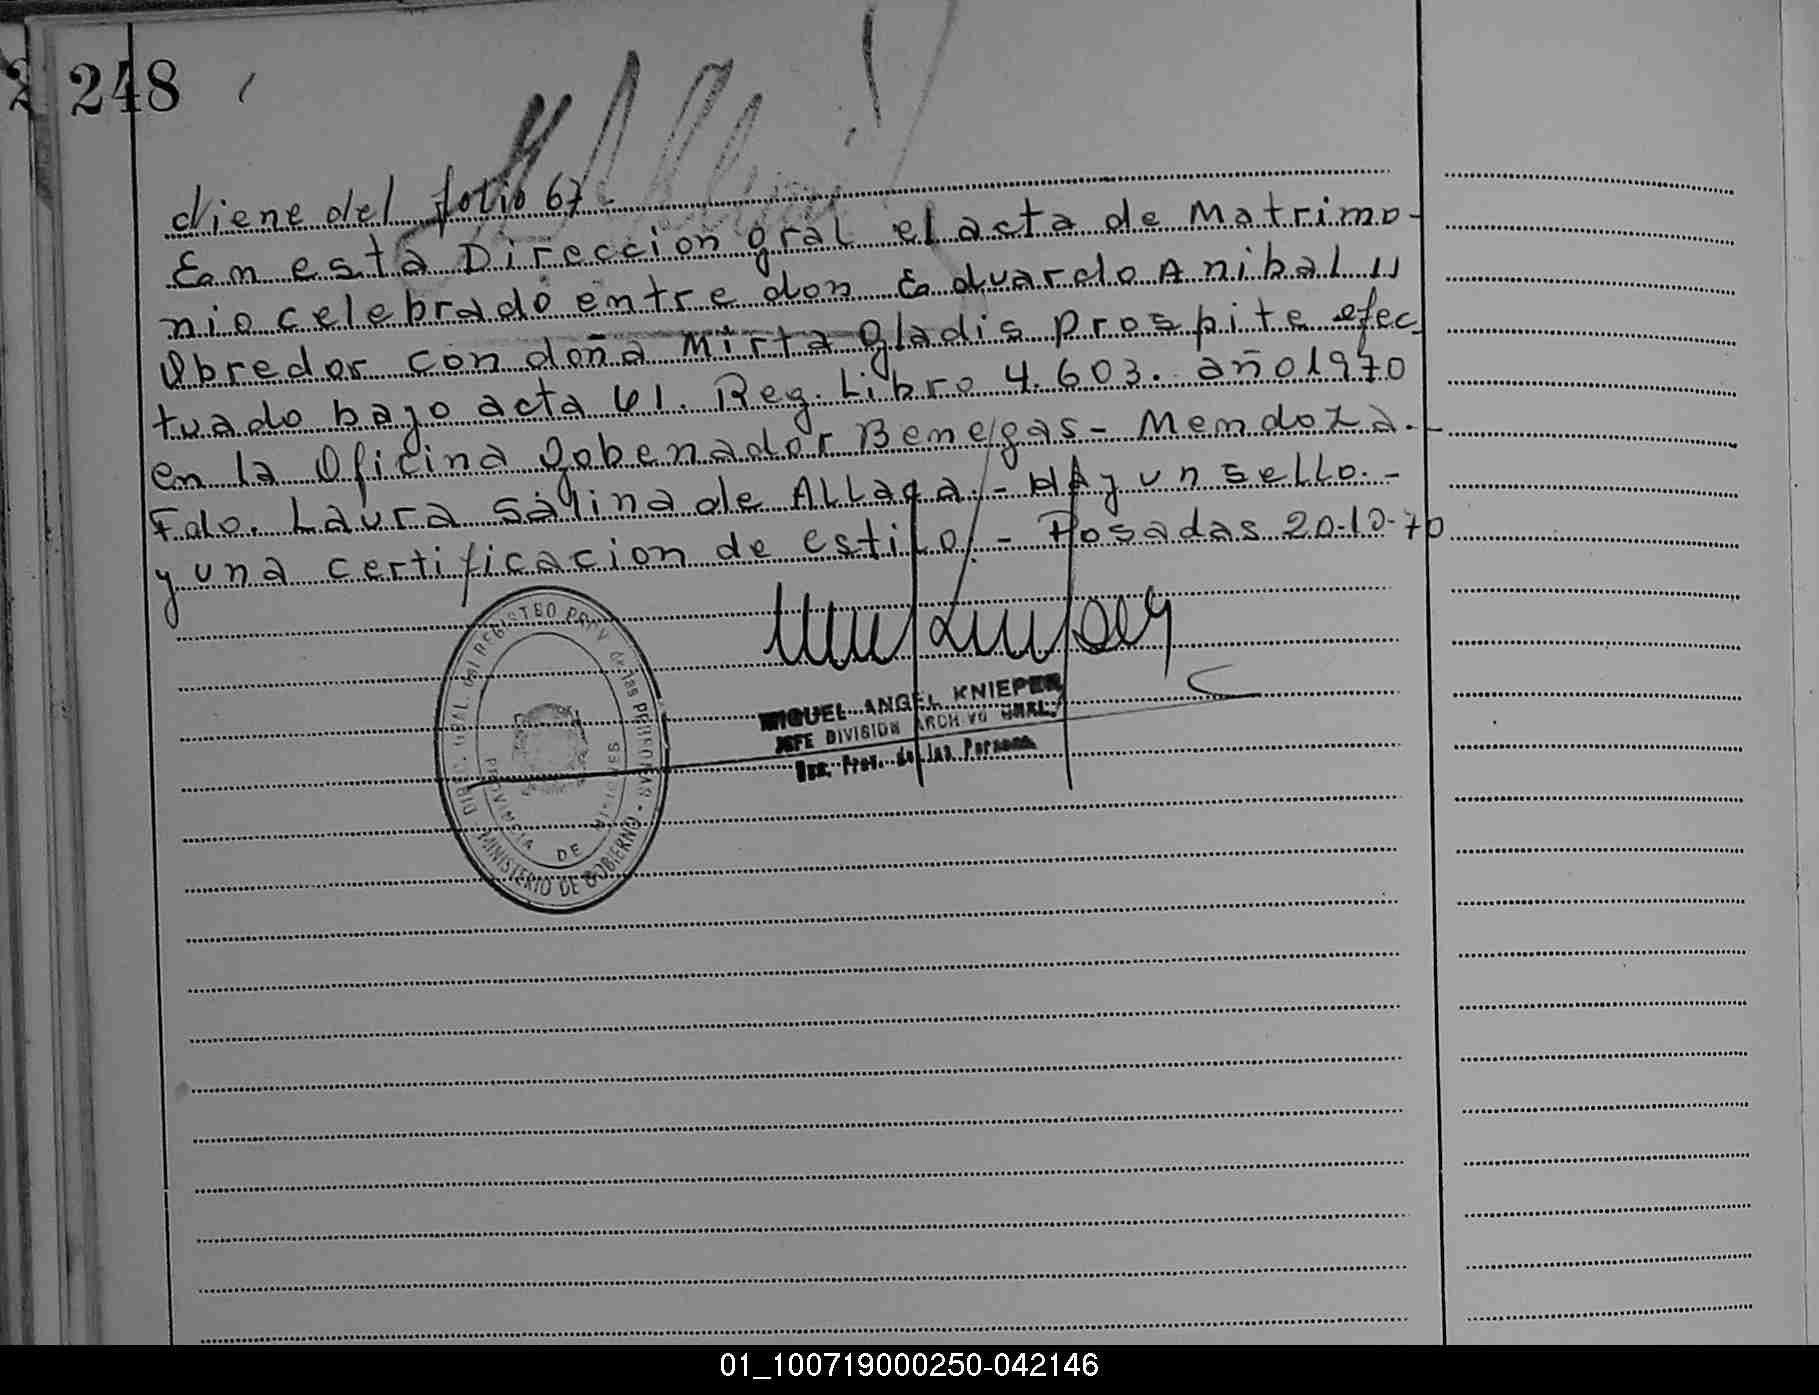 248
Viene del folio 67.-
En esta Direccion gral el acta de Matrimo-
nio celebrado entre don Eduardo Anibal
Obredor con doña Mirta Gladis Prospite efec
tuado bajo acta 61. Reg. Libro 4.603. año 1970
en la Oficina Gobenador Benegas - Mendoza.-
Fdo. Laura Salina de ALLaga.- HAy un sello.-
y una certificacion de estilo.- Posadas 20-10-70
DIREC. GRAL. del REGISTRO PROV. de las PERSONAS - MINISTERIO DE GOBIERNO
PROVINCIA DE MISIONES
MIGUEL ANGEL KNIEPER
JEFE DIVISION ARCHIVO GRAL.
Prov. de las Persons.
01_100719000250-042146